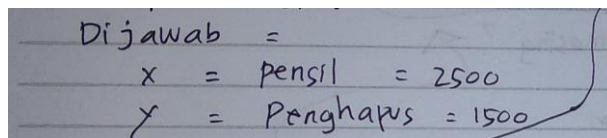 Dijawab =
x = pensil = 2500
y = Penghapus = 1500